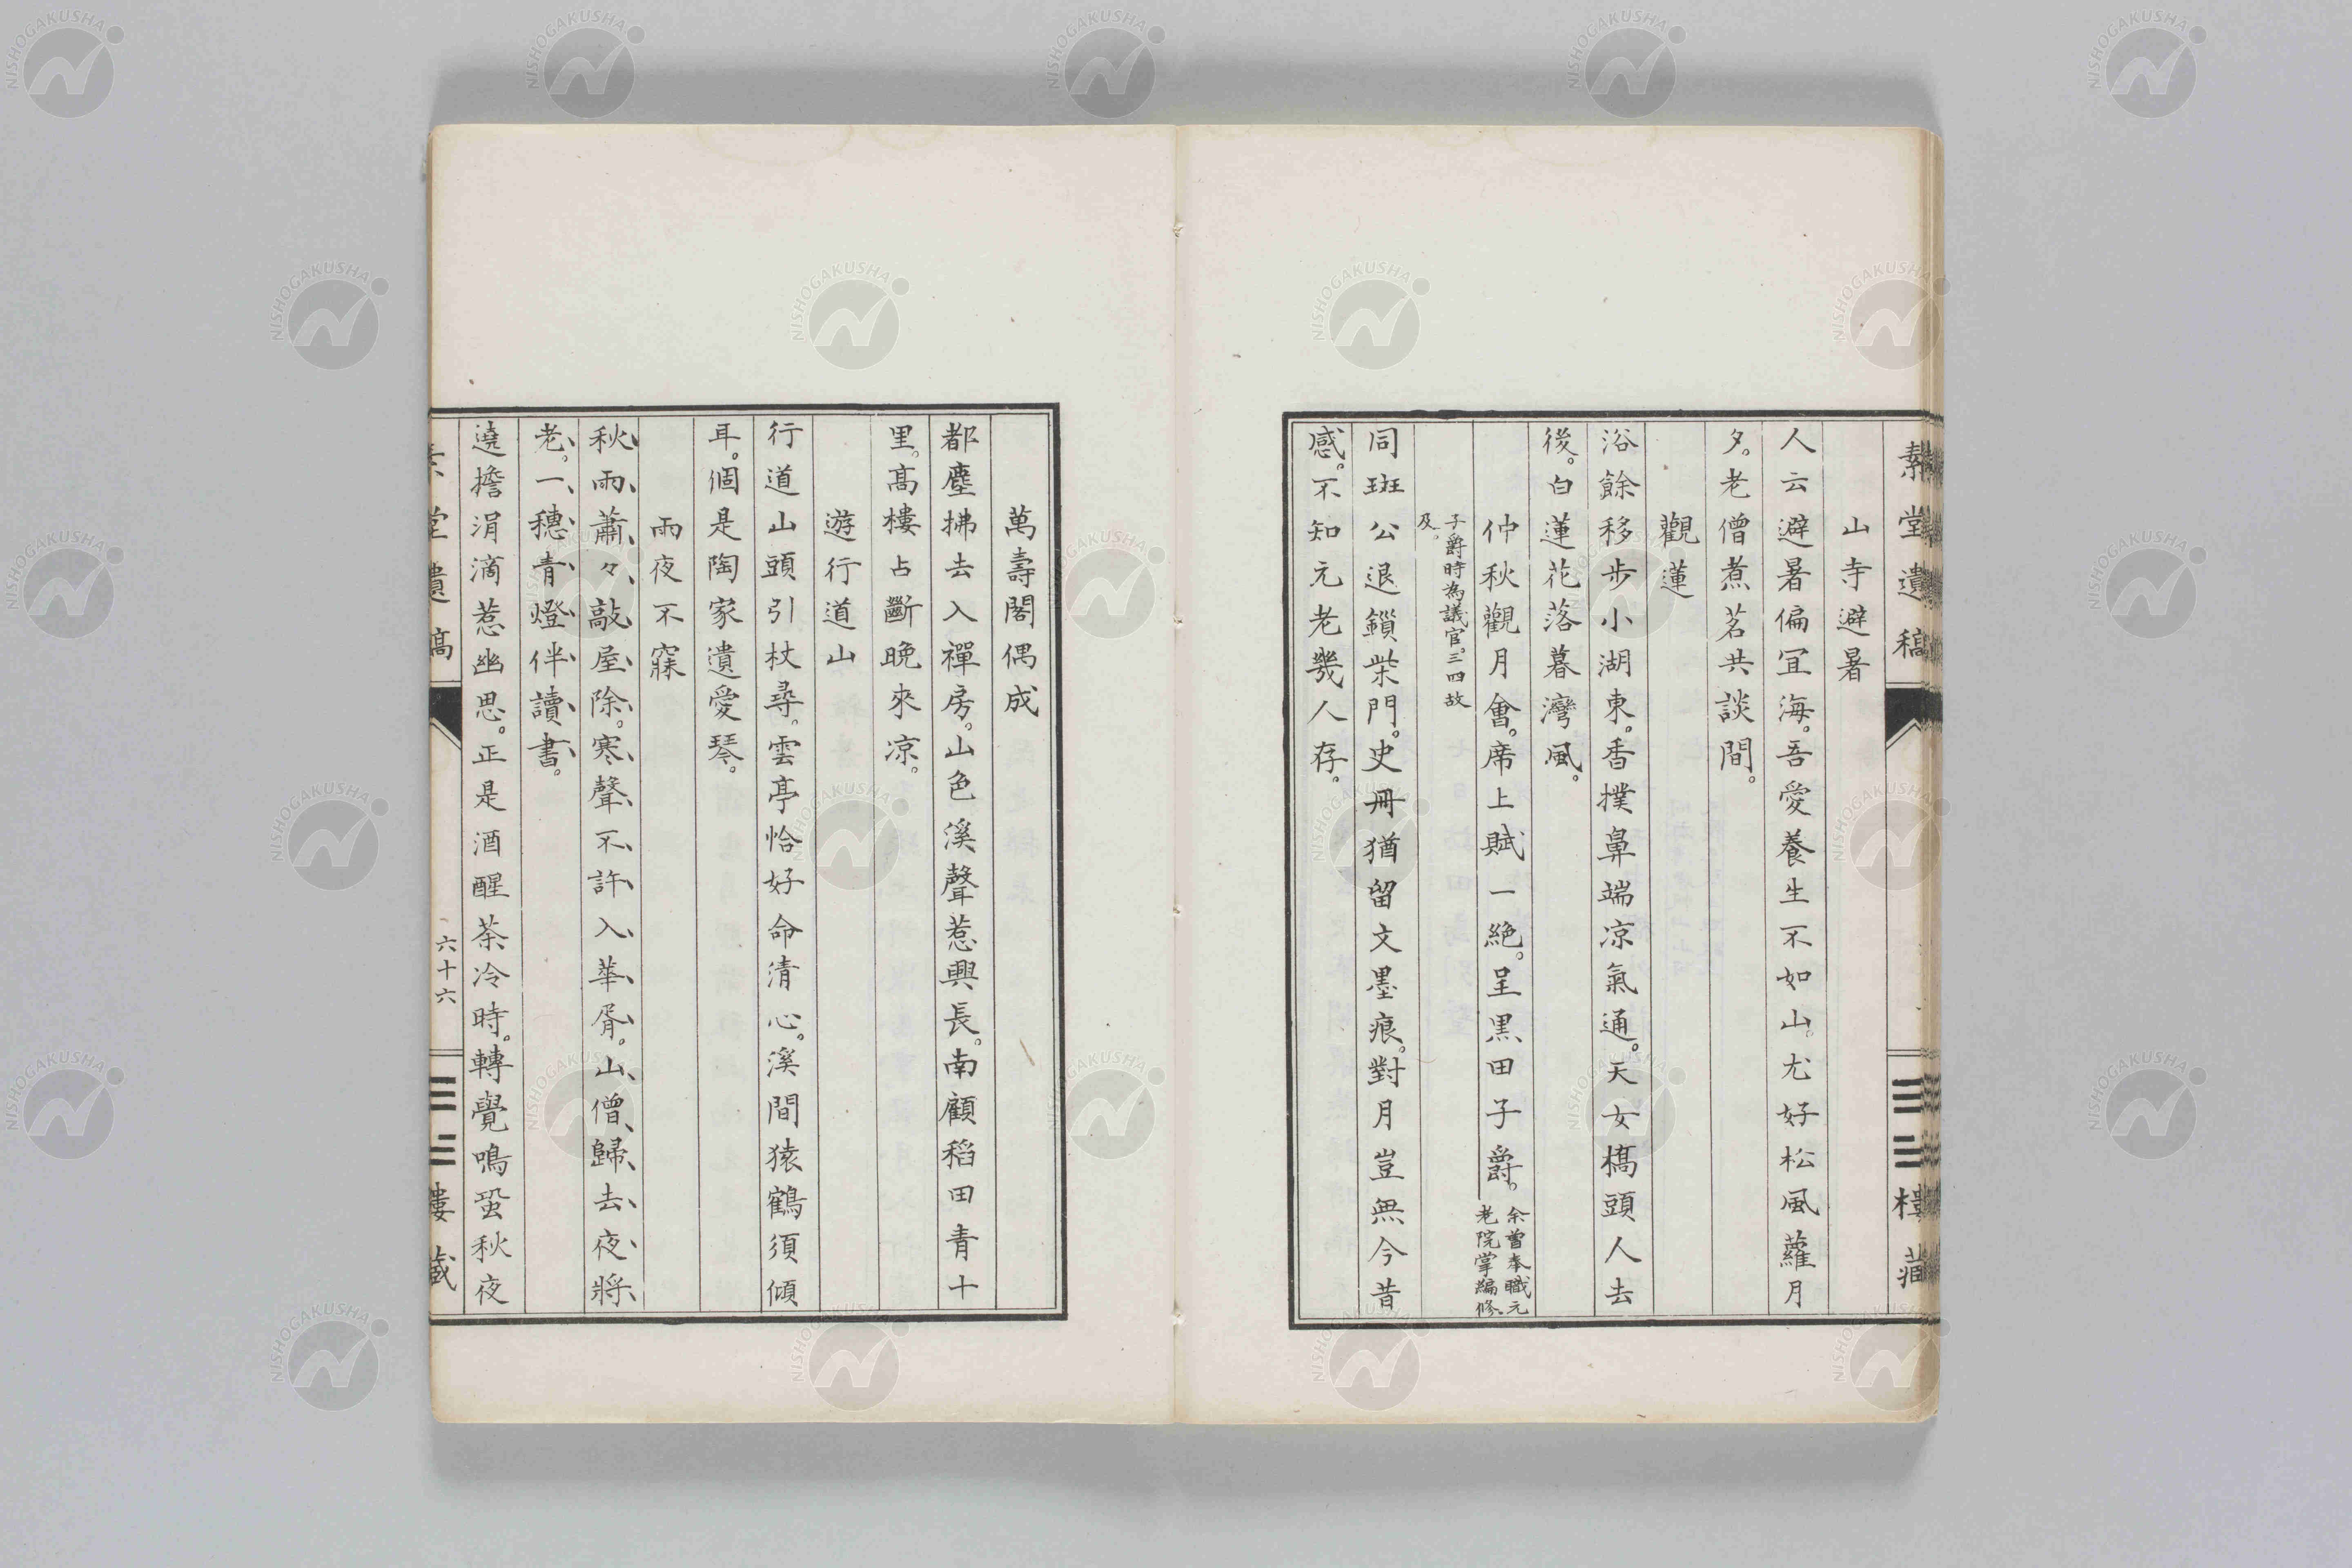 素堂遺稿
樓藏
山寺避暑
人云避暑偏冝海。吾愛養生不如山。尤好松風蘿月
夕。老僧煮茗共談間。
觀蓮
浴餘移步小湖東。香撲鼻端凉氣通。天女橋頭人去
後。白蓮花落暮灣風。
仲秋觀月會。席上賦一絶。呈黒田子爵。余曽奉職元老院掌編修。
子爵時為議官。三四故及。
同班公退鎖柴門。史冊猶留文墨痕。對月豈無今昔
感。不知元老幾人存。
萬壽閣偶成
都塵拂去入禪房。山色溪聲惹興長。南顧稻田青十
里。髙樓占斷晩來凉。
遊行道山
行道山頭引杖尋。雲亭恰好命清心。溪間猿鶴須傾
耳。個是陶家遺愛琴。
雨夜不寐
秋、雨、蕭、々、敲、屋、除、。寒、聲、不、許、入、華、胥、。山、僧、歸、去、夜、將、
老、。一、穗、青、燈、伴、讀、書、。
遶擔涓滴惹幽思。正是酒醒茶冷時。轉覺鳴蛩秋夜
素堂遺稿
六十六
樓藏
NISHOGAKUSHA